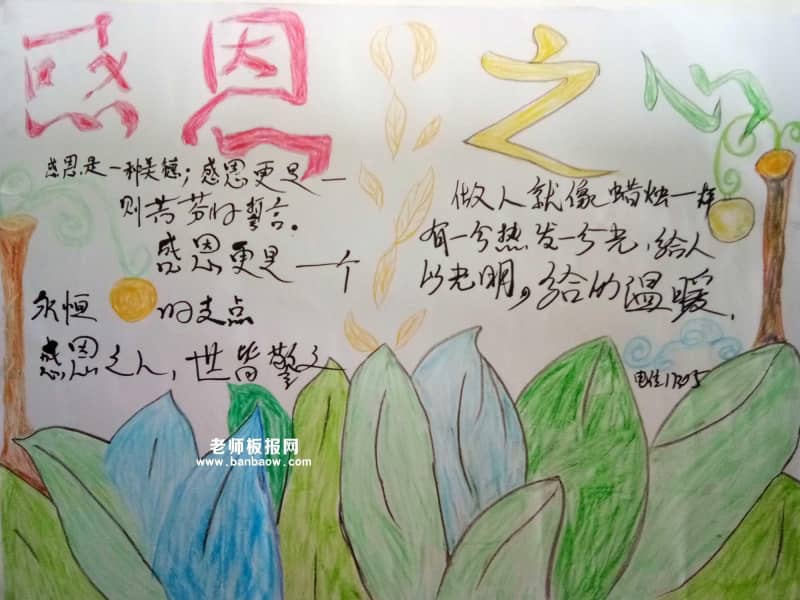 感恩之心
感恩是一种美德；感恩更是一
则芬芳的誓言。
感恩更是一个
永恒的支点
感恩之人，世皆敬之
做人就像蜡烛一样
有一分热发一分光，给人
以光明，给的温暖.
电信1305
老师板报网
www.banbaow.com